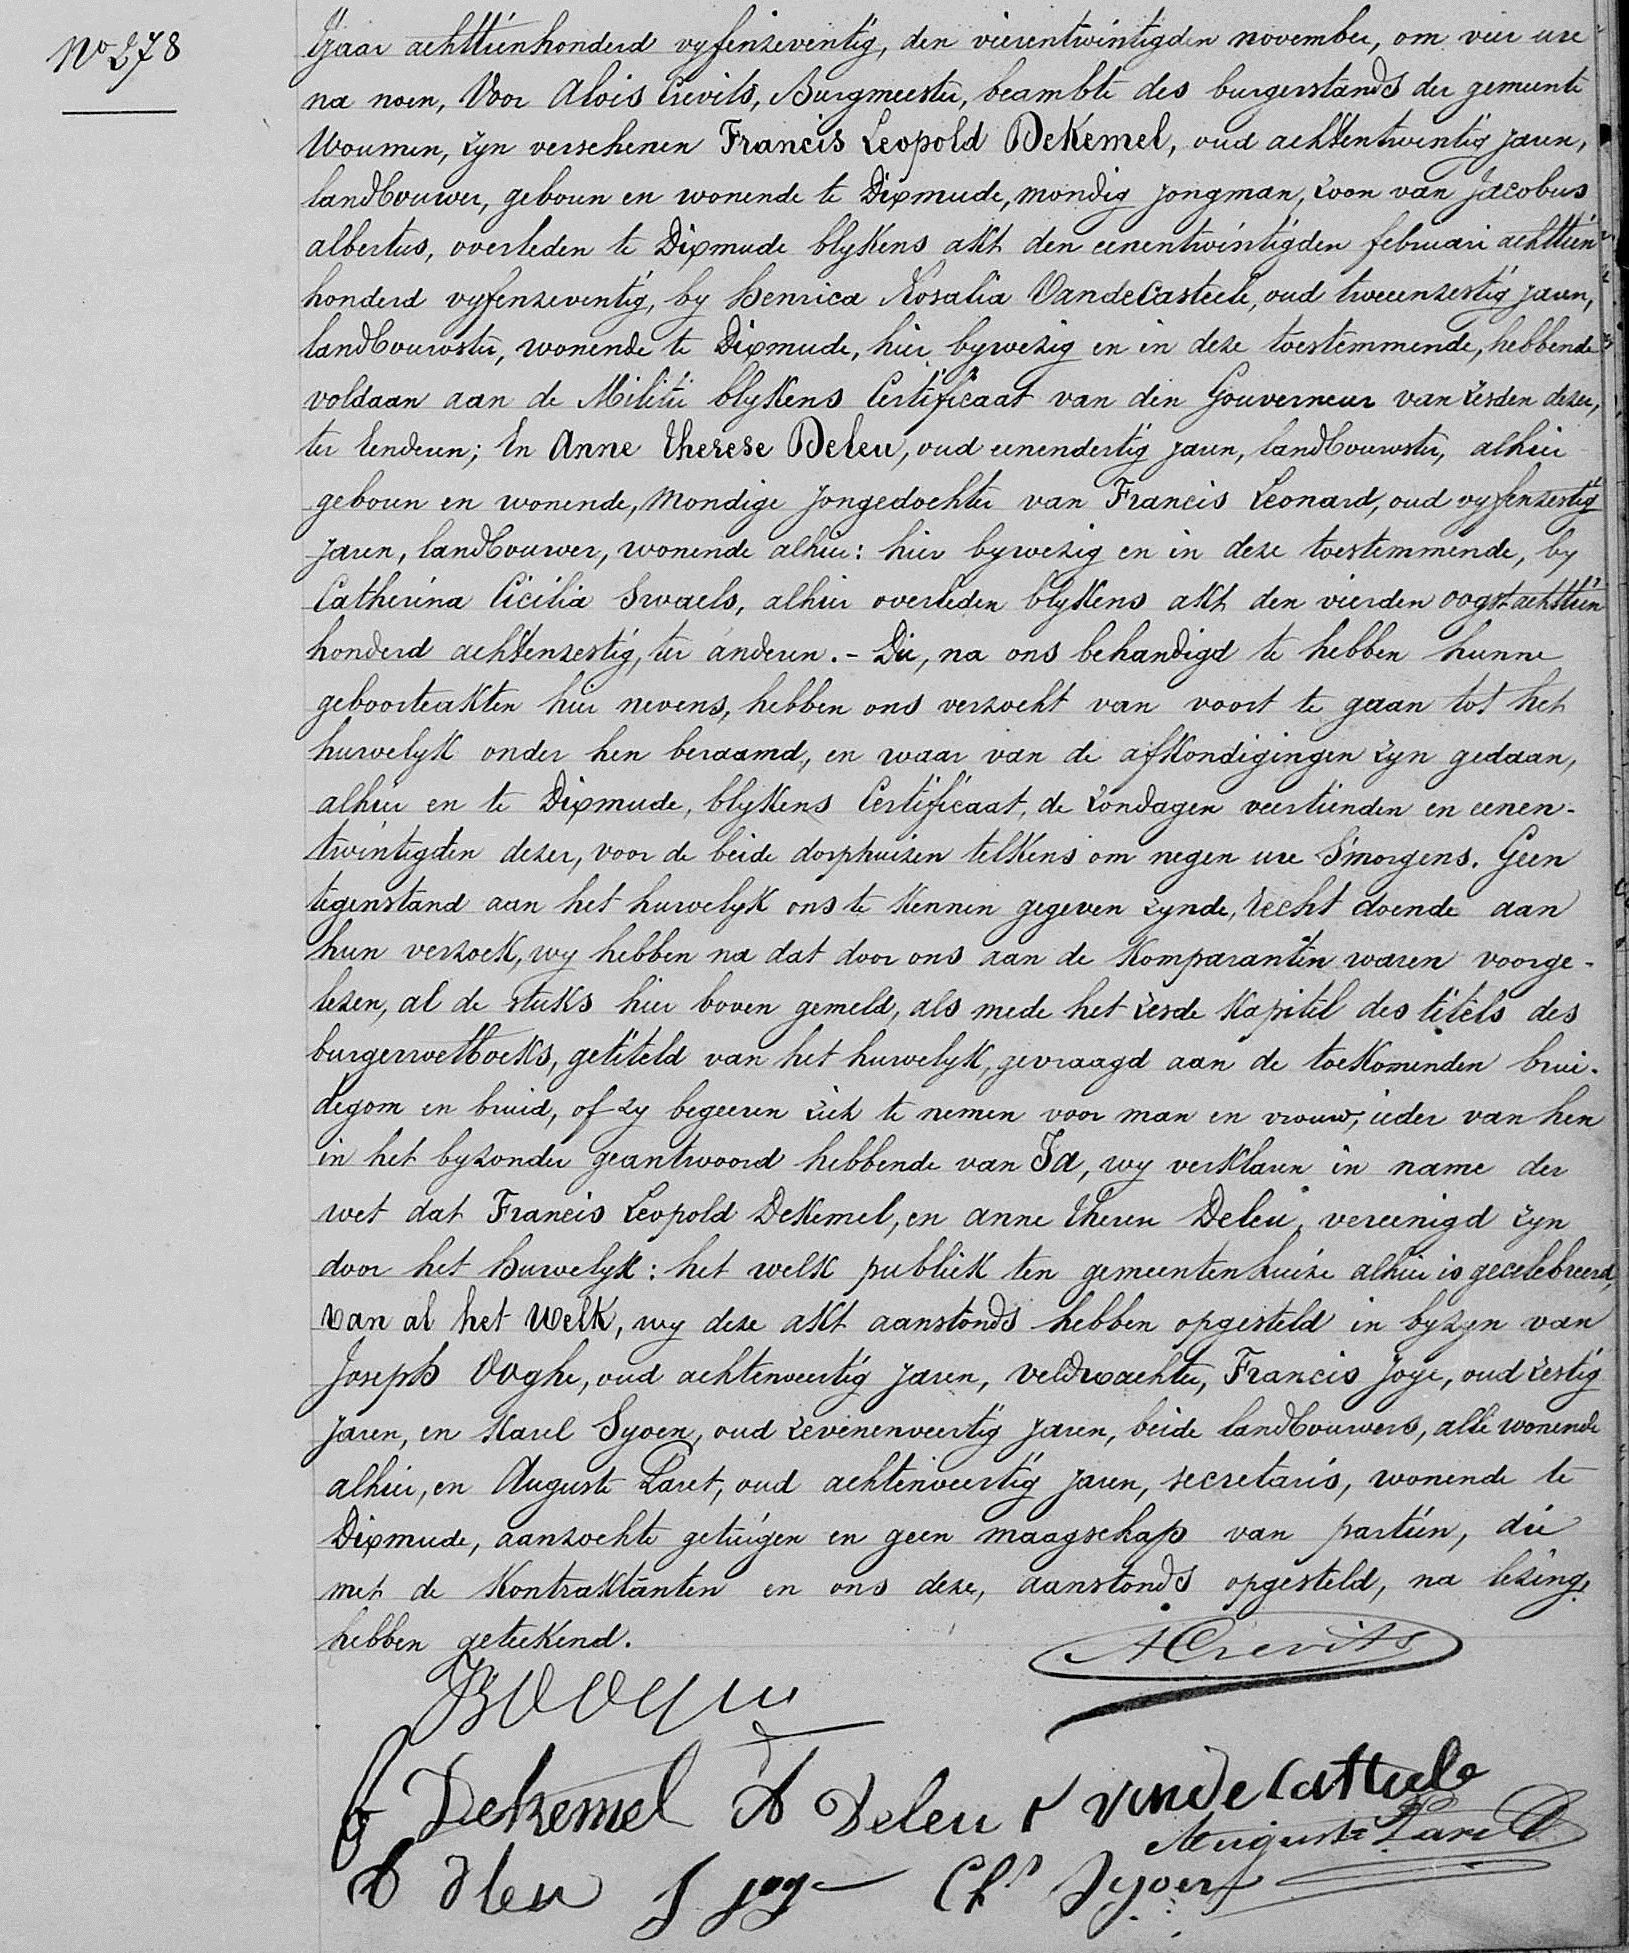 No 278
Yjaar achttienhonderd vyfenzeventig, den vierentwintigden november, om vier ure
na noen, Voor Alois Crevits, Burgmeester, beambte des burgerstands der gemeente
Woumen, zyn verschenen Francis Leopold DeKemel, oud achtentwintig jaren,
landbouwer, geboren en wonende te Dixmude, mondig jongman, zoon van Jacobus
albertus, overleden te Dixmude blykens akt den eenentwintigden februari achttien
honderd vyfenzeventig, by Henrica Rosalia VandeCasteele, oud tweeenzestig jaren,
landbouwster, wonende te Dixmude, hier bywezig en in deze toestemmende, hebbende
voldaan aan de Militie blykens Certificaat van den Gouverneur van zesden dezer,
ter Eenderen; En Anne Therese Deleu, oud eenendertig jaren, landbouwster, alhier
geboren en wonende, Mondige jongedochter van Francis Leonard, oud vyfenzestig
jaren, landbouwer, wonende alhier: hier bywezig en in deze toestemmende, by
Catherina Cicilia Swaels, alhier overleden blykens akt den vierden oogst achttien
honderd achtenzestig, ter anderen.- Die, na ons behandigd te hebben hunne
geboorteakten hier nevens, hebben ons verzocht van voort te gaan tot het
huwelyk onder hen beraamd, en waar van de afkondigingen zyn gedaan,
alhier en te Dixmude, blykens Certificaat, de zondagen veertienden en eenen-
twintigden dezer, voor de beide dorphuizen telkens om negen ure S'morgens. Geen
tegenstand aan het huwelyk ons te kennen gegeven zynde, recht doende aan
hun verzoek, wy hebben na dat door ons aan de komparanten waren voorge-
lezen, al de stuks hier boven gemeld, als mede het zesde kapitel des titels des
burgerwetboeks, getiteld van het huwelyk, gevraagd aan de toekomenden brui-
degom en bruid, of zy begeeren zich te nemen voor man en vrouw; ieder van hen
in het byzonder geantwoord hebbende van Ja, wy verklaren in name der
wet dat Francis Leopold DeKemel, en anne Theren Deleu, vereenigd zyn
door het Huwelyk: het welk publiek ten gemeentenhuize alhier is gecelebreerd,
van al het welk, wy deze akt aanstonds hebben opgesteld in byzyn van
Joseph Ooghe, oud achtenveertig jaren, veldwachter, Francis Joye, oud zestig
jaren, en Karel Syoen, oud zevenenveertig jaren, beide landbouwers, alle wonende
alhier, en Auguste Laret, oud achtenveertig jaren, secretaris, wonende te
Dixmude, aanzochte getuigen en geen maagschap van partien, die
met de Kontraktanten en ons deze, aanstonds opgesteld, na lezing,
hebben geteekend.
ACrevits
F Dekemel A Deleu r vandeCasteele
Auguste Laret
F joye Chs Syoen